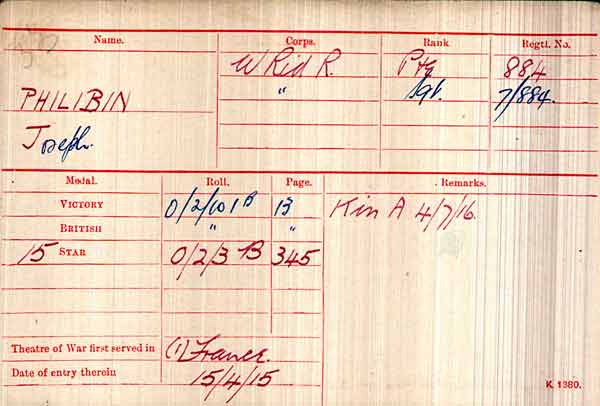 Name. Corps. Rank Regtl. No.
W Rid R. Pte 884
PHILIBIN " Sgt. 7/884.
Joseph.
Medal. Roll. Page. Remarks.
VICTORY 0/2/101 B 13 Kin A 4/7/16.
BRITISH " "
15 STAR 0/2/3 B 345
Theatre of War first served in (1) France.
Date of entry therein 15/4/15
K. 1380.